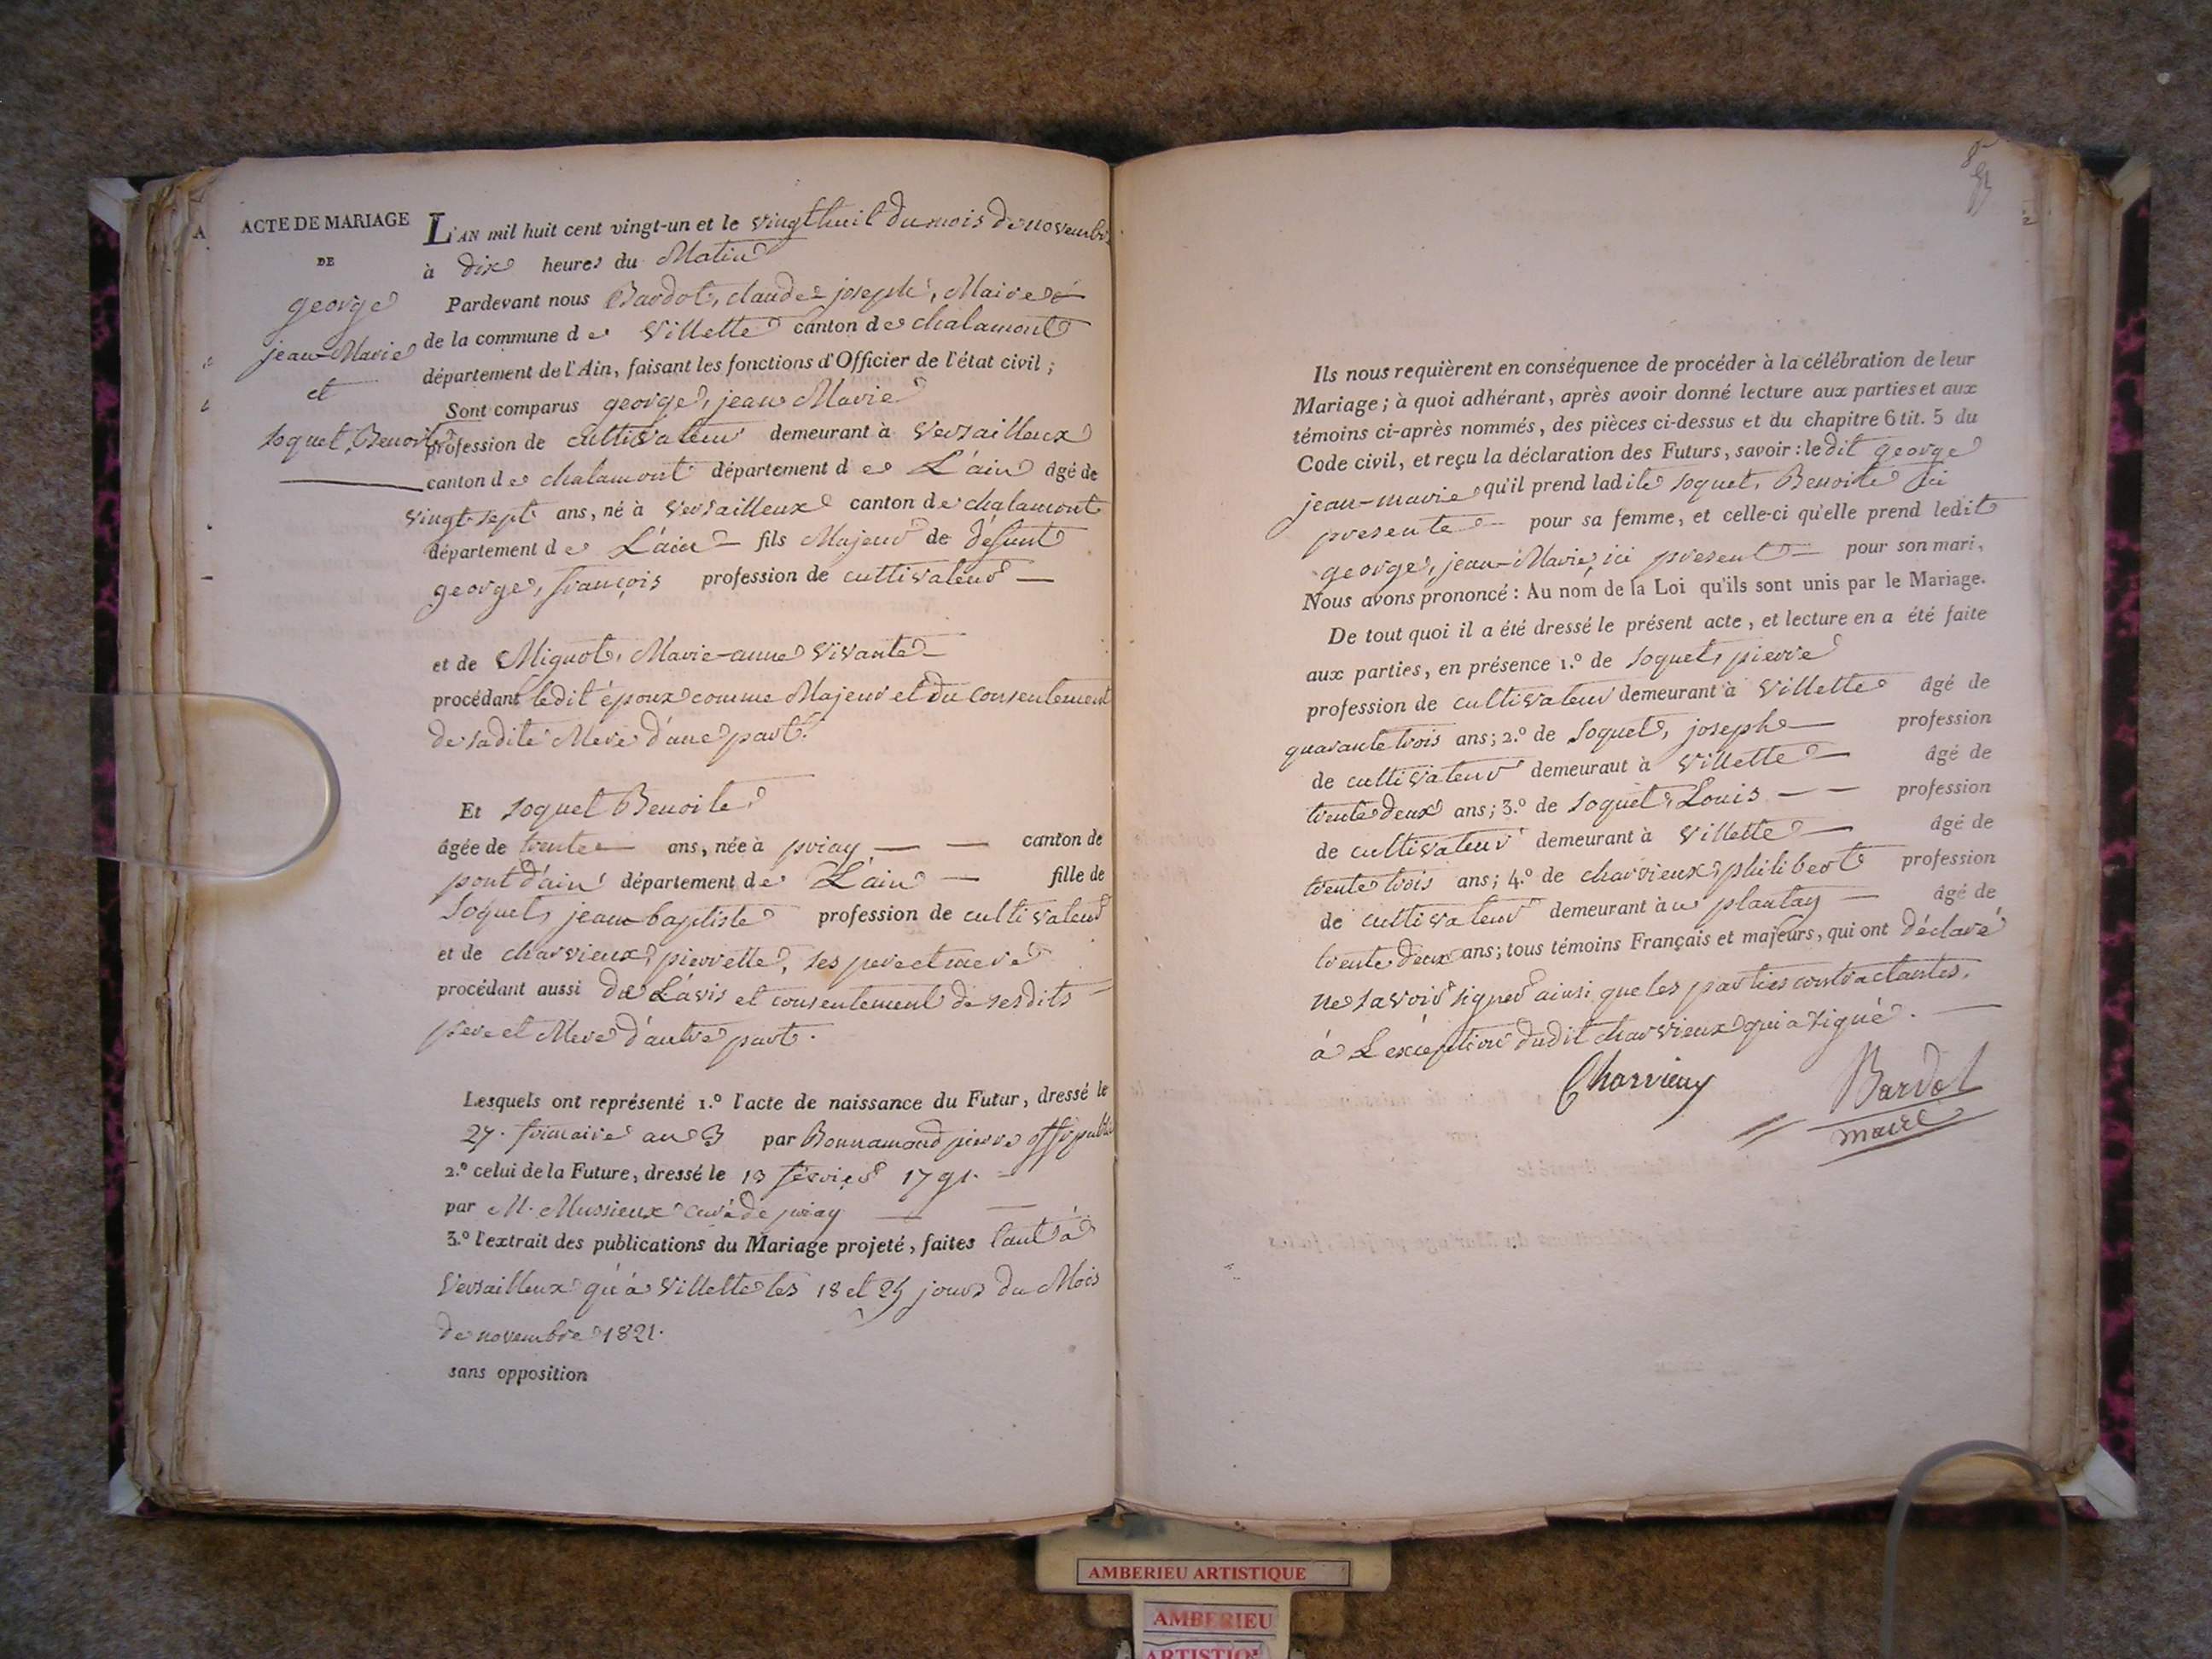 ACTE DE MARIAGE
DE
george
jean-Marie
et
soquet, Benoite
L'AN mil huit cent vingt-un et le vingt huit du mois de novembre
à dix heures du Matin
Pardevant nous Bardot, claude joseph, Maire
de la commune de Villette canton de chalamont
département de l'Ain, faisant les fonctions d'Officier de l'état civil ;
Sont comparus george, jean Marie
profession de cultivateur demeurant à Versailleux
canton de chalamont département de L'ain âgé de
vingt-sept ans, né à Versailleux canton de chalamont
département de L'ain fils Majeur de défunt
george, françois profession de cultivateur —
et de Mignot, Marie-anne vivante
procédant ledit époux comme Majeur et du consentement
de sadite Mere d'une part.
Et soquet Benoite,
âgée de trente ans, née à priay — — canton de
pont d'ain département de L'ain — fille de
soquet, jean baptiste profession de cultivateur
et de charvieux, pierrette, ses pere et mere
procédant aussi de L'avis et consentement de sesdits
pere et Mere d'autre part.
Lesquels ont représenté 1.º l'acte de naissance du Futur, dressé le
27. frimaire an 3 par Bonnamand pierre off. public
2.º celui de la Future, dressé le 13 février 1791.
par M. Mussieux curé de priay — —
3.º l'extrait des publications du Mariage projeté, faites tant à
Versailleux qu'à Villette les 18 et 25 jours du Mois
de novembre 1821.
sans opposition
Ils nous requièrent en conséquence de procéder à la célébration de leur
Mariage ; à quoi adhérant, après avoir donné lecture aux parties et aux
témoins ci-après nommés, des pièces ci-dessus et du chapitre 6 tit. 5 du
Code civil, et reçu la déclaration des Futurs, savoir : ledit george
jean-marie qu'il prend ladite soquet, Benoite ici
presente — pour sa femme, et celle-ci qu'elle prend ledit
george, jean-Marie, ici present — pour son mari,
Nous avons prononcé : Au nom de la Loi qu'ils sont unis par le Mariage.
De tout quoi il a été dressé le présent acte, et lecture en a été faite
aux parties, en présence 1.º de soquet, pierre
profession de cultivateur demeurant à Villette âgé de
quarante trois ans ; 2.º de soquet, joseph — profession
de cultivateur demeuraut à Villette — âgé de
trente deux ans ; 3.º de soquet, Louis — — profession
de cultivateur demeurant à Villette — âgé de
trente trois ans ; 4.º de charvieux, philibert profession
de cultivateur demeurant au plantay — âgé de
trente deux ans ; tous témoins Français et majeurs, qui ont déclaré
ne savoir signer ainsi que les parties contractantes.
à L'exception dudit charvieux qui a signé. —
Charvieux
Bardot
maire
AMBERIEU ARTISTIQUE
AMBERIEU
ARTISTIQUE